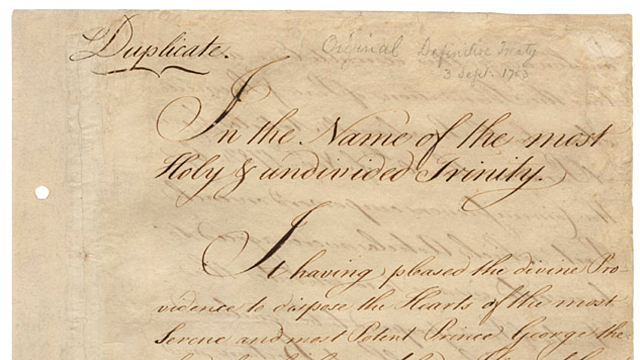 Duplicate.
Original Definitive Treaty
3 Sept. 1783
In the Name of the most
Holy & undivided Trinity.
It having pleased the divine Pro-
vidence to dispose the Hearts of the most
Serene and most Potent Prince George the